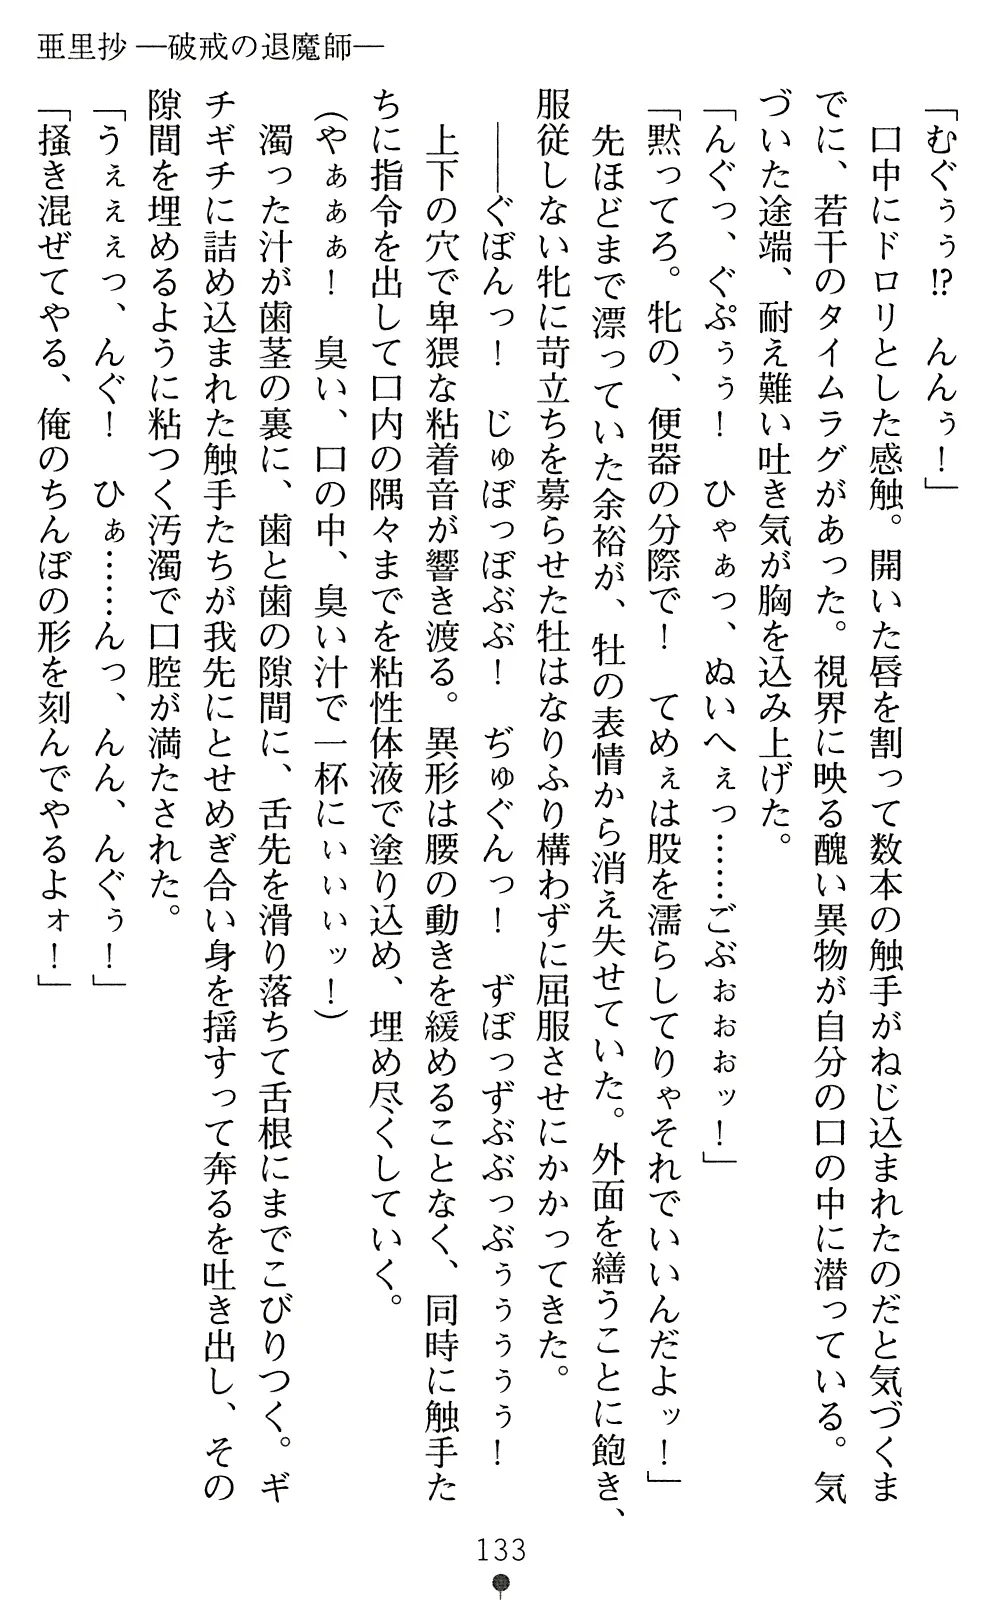 亜里抄 ―破戒の退魔師―
「むぐぅぅ!? んんぅ!」
口中にドロリとした感触。開いた唇を割って数本の触手がねじ込まれたのだと気づくま
でに、若干のタイムラグがあった。視界に映る醜い異物が自分の口の中に潜っている。気
づいた途端、耐え難い吐き気が胸を込み上げた。
「んぐっ、ぐぷぅぅ! ひゃぁっ、ぬいへぇっ……ごぶぉぉぉッ!」
「黙ってろ。牝の、便器の分際で! てめぇは股を濡らしてりゃそれでいいんだよッ!」
先ほどまで漂っていた余裕が、牡の表情から消え失せていた。外面を繕うことに飽き、
服従しない牝に苛立ちを募らせた牡はなりふり構わずに屈服させにかかってきた。
――ぐぼんっ! じゅぼっぼぶぶ! ぢゅぐんっ! ずぼっずぶぶっぶぅぅぅぅぅ!
上下の穴で卑猥な粘着音が響き渡る。異形は腰の動きを緩めることなく、同時に触手た
ちに指令を出して口内の隅々までを粘性体液で塗り込め、埋め尽くしていく。
(やぁぁぁ! 臭い、口の中、臭い汁で一杯にぃぃぃッ!)
濁った汁が歯茎の裏に、歯と歯の隙間に、舌先を滑り落ちて舌根にまでこびりつく。ギ
チギチに詰め込まれた触手たちが我先にとせめぎ合い身を揺すって奔るを吐き出し、その
隙間を埋めるように粘つく汚濁で口腔が満たされた。
「うぇぇぇっ、んぐ! ひぁ……んっ、んん、んぐぅ!」
「掻き混ぜてやる、俺のちんぼの形を刻んでやるよォ!」
133